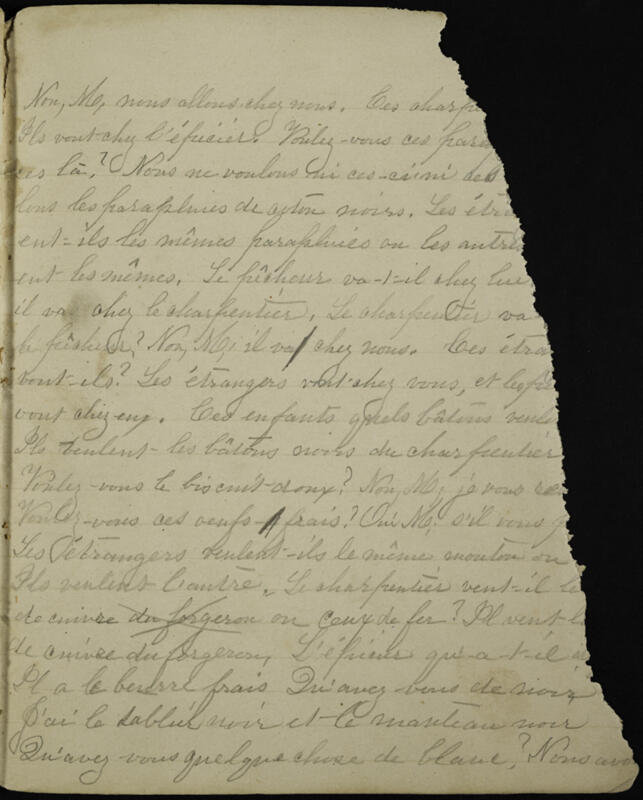 Non, M, nous allons chez nous. Ces charp
Ils vont-chez l'épicier. Voulez-vous ces para
ces là? Nous ne voulons ni ces-ci ni ces
lons les parapluies de coton noirs. Les étra
ent-ils les mêmes parapluies ou les autre
ent les mêmes. Le pêcheur va-t-il chez lui
il va chez le charpentier. Le charpentier va
le pêcheur? Non, M, il va chez nous. Ces étra
vont-ils? Les étrangers vont chez vous, et les
vont chez eux. Ces enfants quels bâtons veul
Ils veulent-les bâtons noirs du charpentier
Voulez-vous le biscuit-doux? Non, M, je vous re
Voulez-vous ces oeufs frais? Oui M, s'il vous p
Les étrangers veulent-ils le même mouton ou
Ils veulent l'autre. Le charpentier veut-il le
de cuivre du forgeron ou ceux de fer? Il veut l
de cuivre du forgeron, L'épicier qu'a-t-il
Il a le beurre frais Qu'avez-vous de noir
J'ai le tablier noir et-le manteau noir
Qu'avez vous quelque chose de blanc? Nous avo